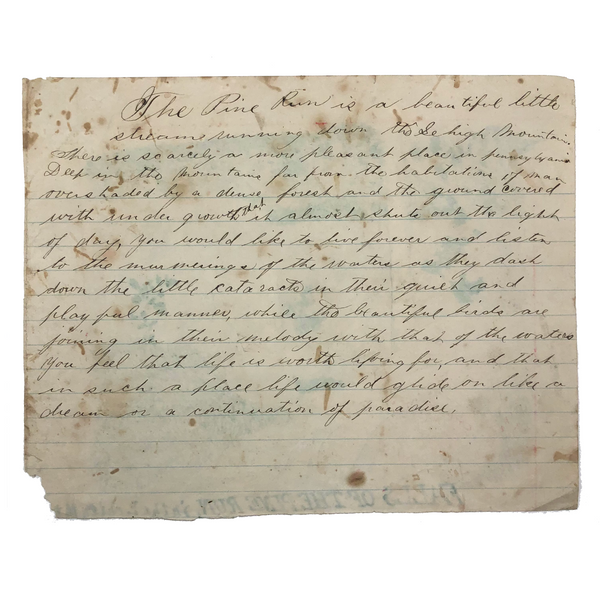 The Pine Run is a beautiful little
streams running down the Lehigh Mountains
There is scarcely a more pleasant place in pennsylvania
Deep in the Mountains far from the habitations of man
overshaded by a dense forest and the ground covered
with under growth that it almost shuts out the light
of day, you would like to live forever and listen
to the murmerings of the waters as they dash
down the little cataracts in their quiet and
playful manner, while the beautiful birds are
joining in their melody with that of the waters
you feel that life is worth living for, and that
in such a place life would glide on like a
dream or a continuation of paradise.
OF THE PINE RUN